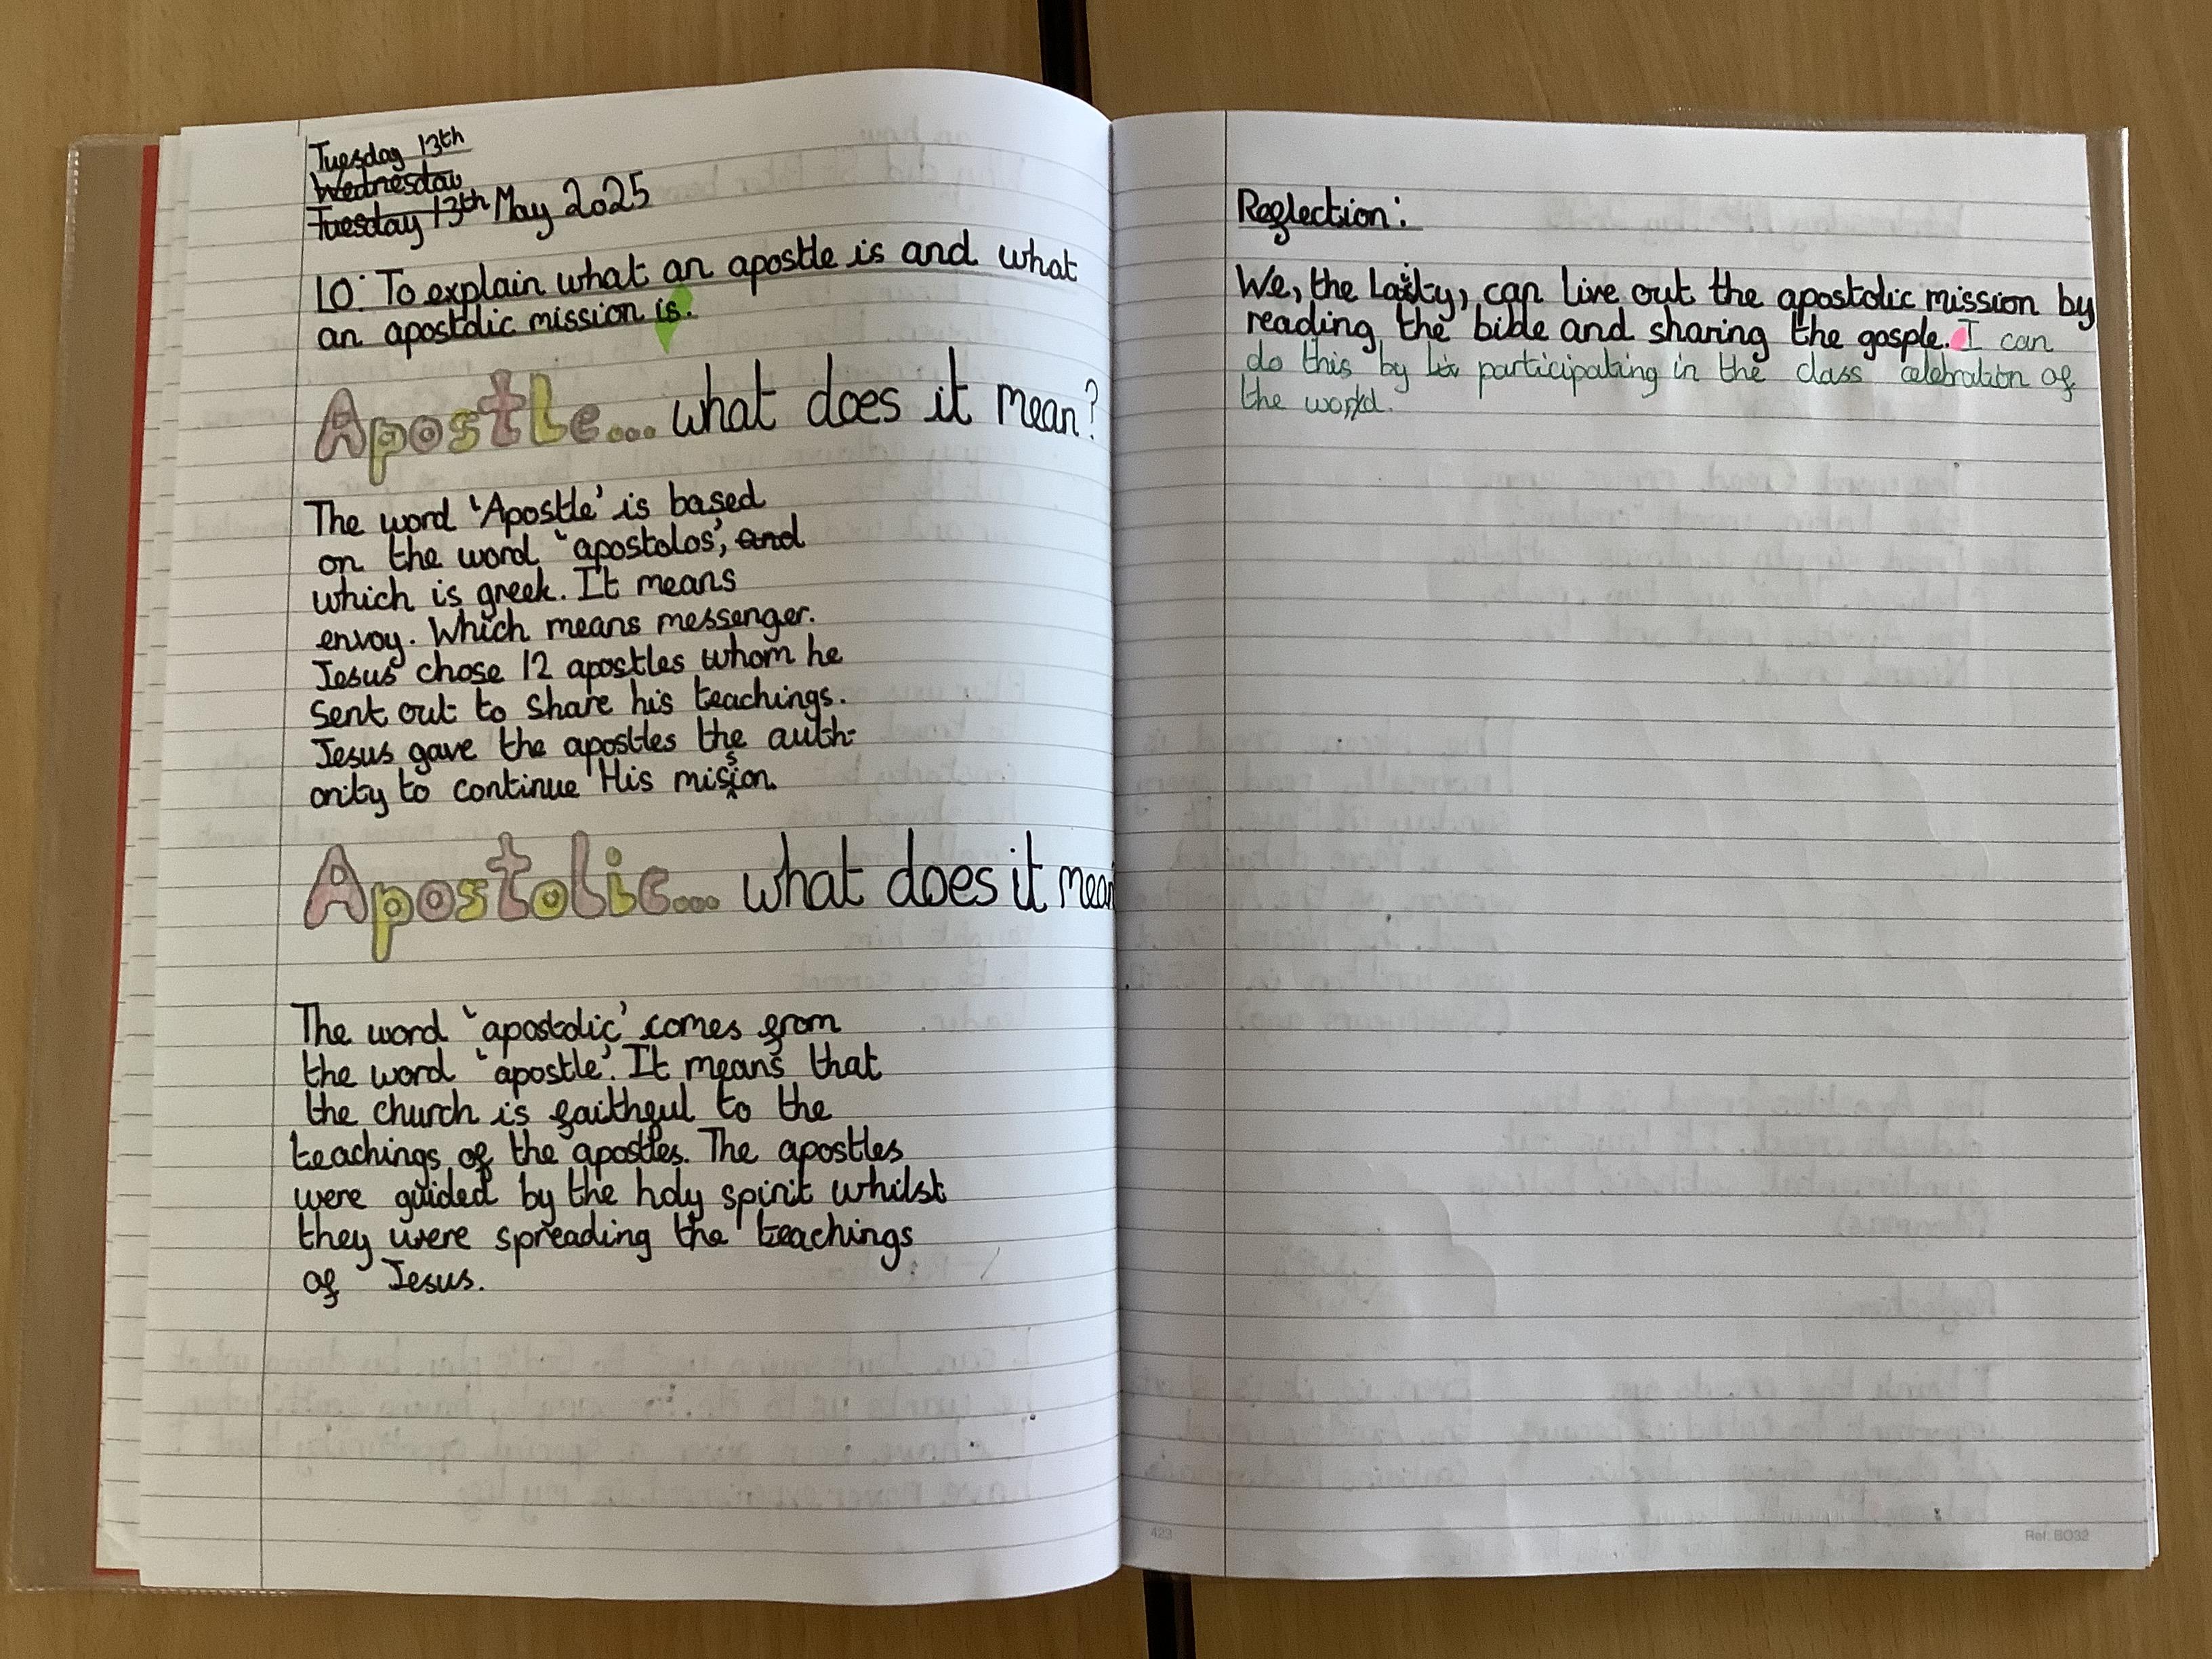 Tuesday 13th
Wednesday
Tuesday 13th May 2025
LO: To explain what an apostle is and what
an apostolic mission is.
Apostle... what does it mean?
The word 'Apostle' is based
on the word 'apostolos', and
which is greek. It means
envoy. Which means messenger.
Jesus chose 12 apostles whom he
sent out to share his teachings.
Jesus gave the apostles the auth-
ority to continue His mission.
Apostolic... what does it mean
The word 'apostolic' comes from
the word 'apostle'. It means that
the church is faithful to the
teachings of the apostles. The apostles
were guided by the holy spirit whilst
they were spreading the teachings
of Jesus.
Reflection:
We, the Laity, can live out the apostolic mission by
reading the bible and sharing the gosple. I can
do this by participating in the class celebration of
the word.
423
Ref: BO32